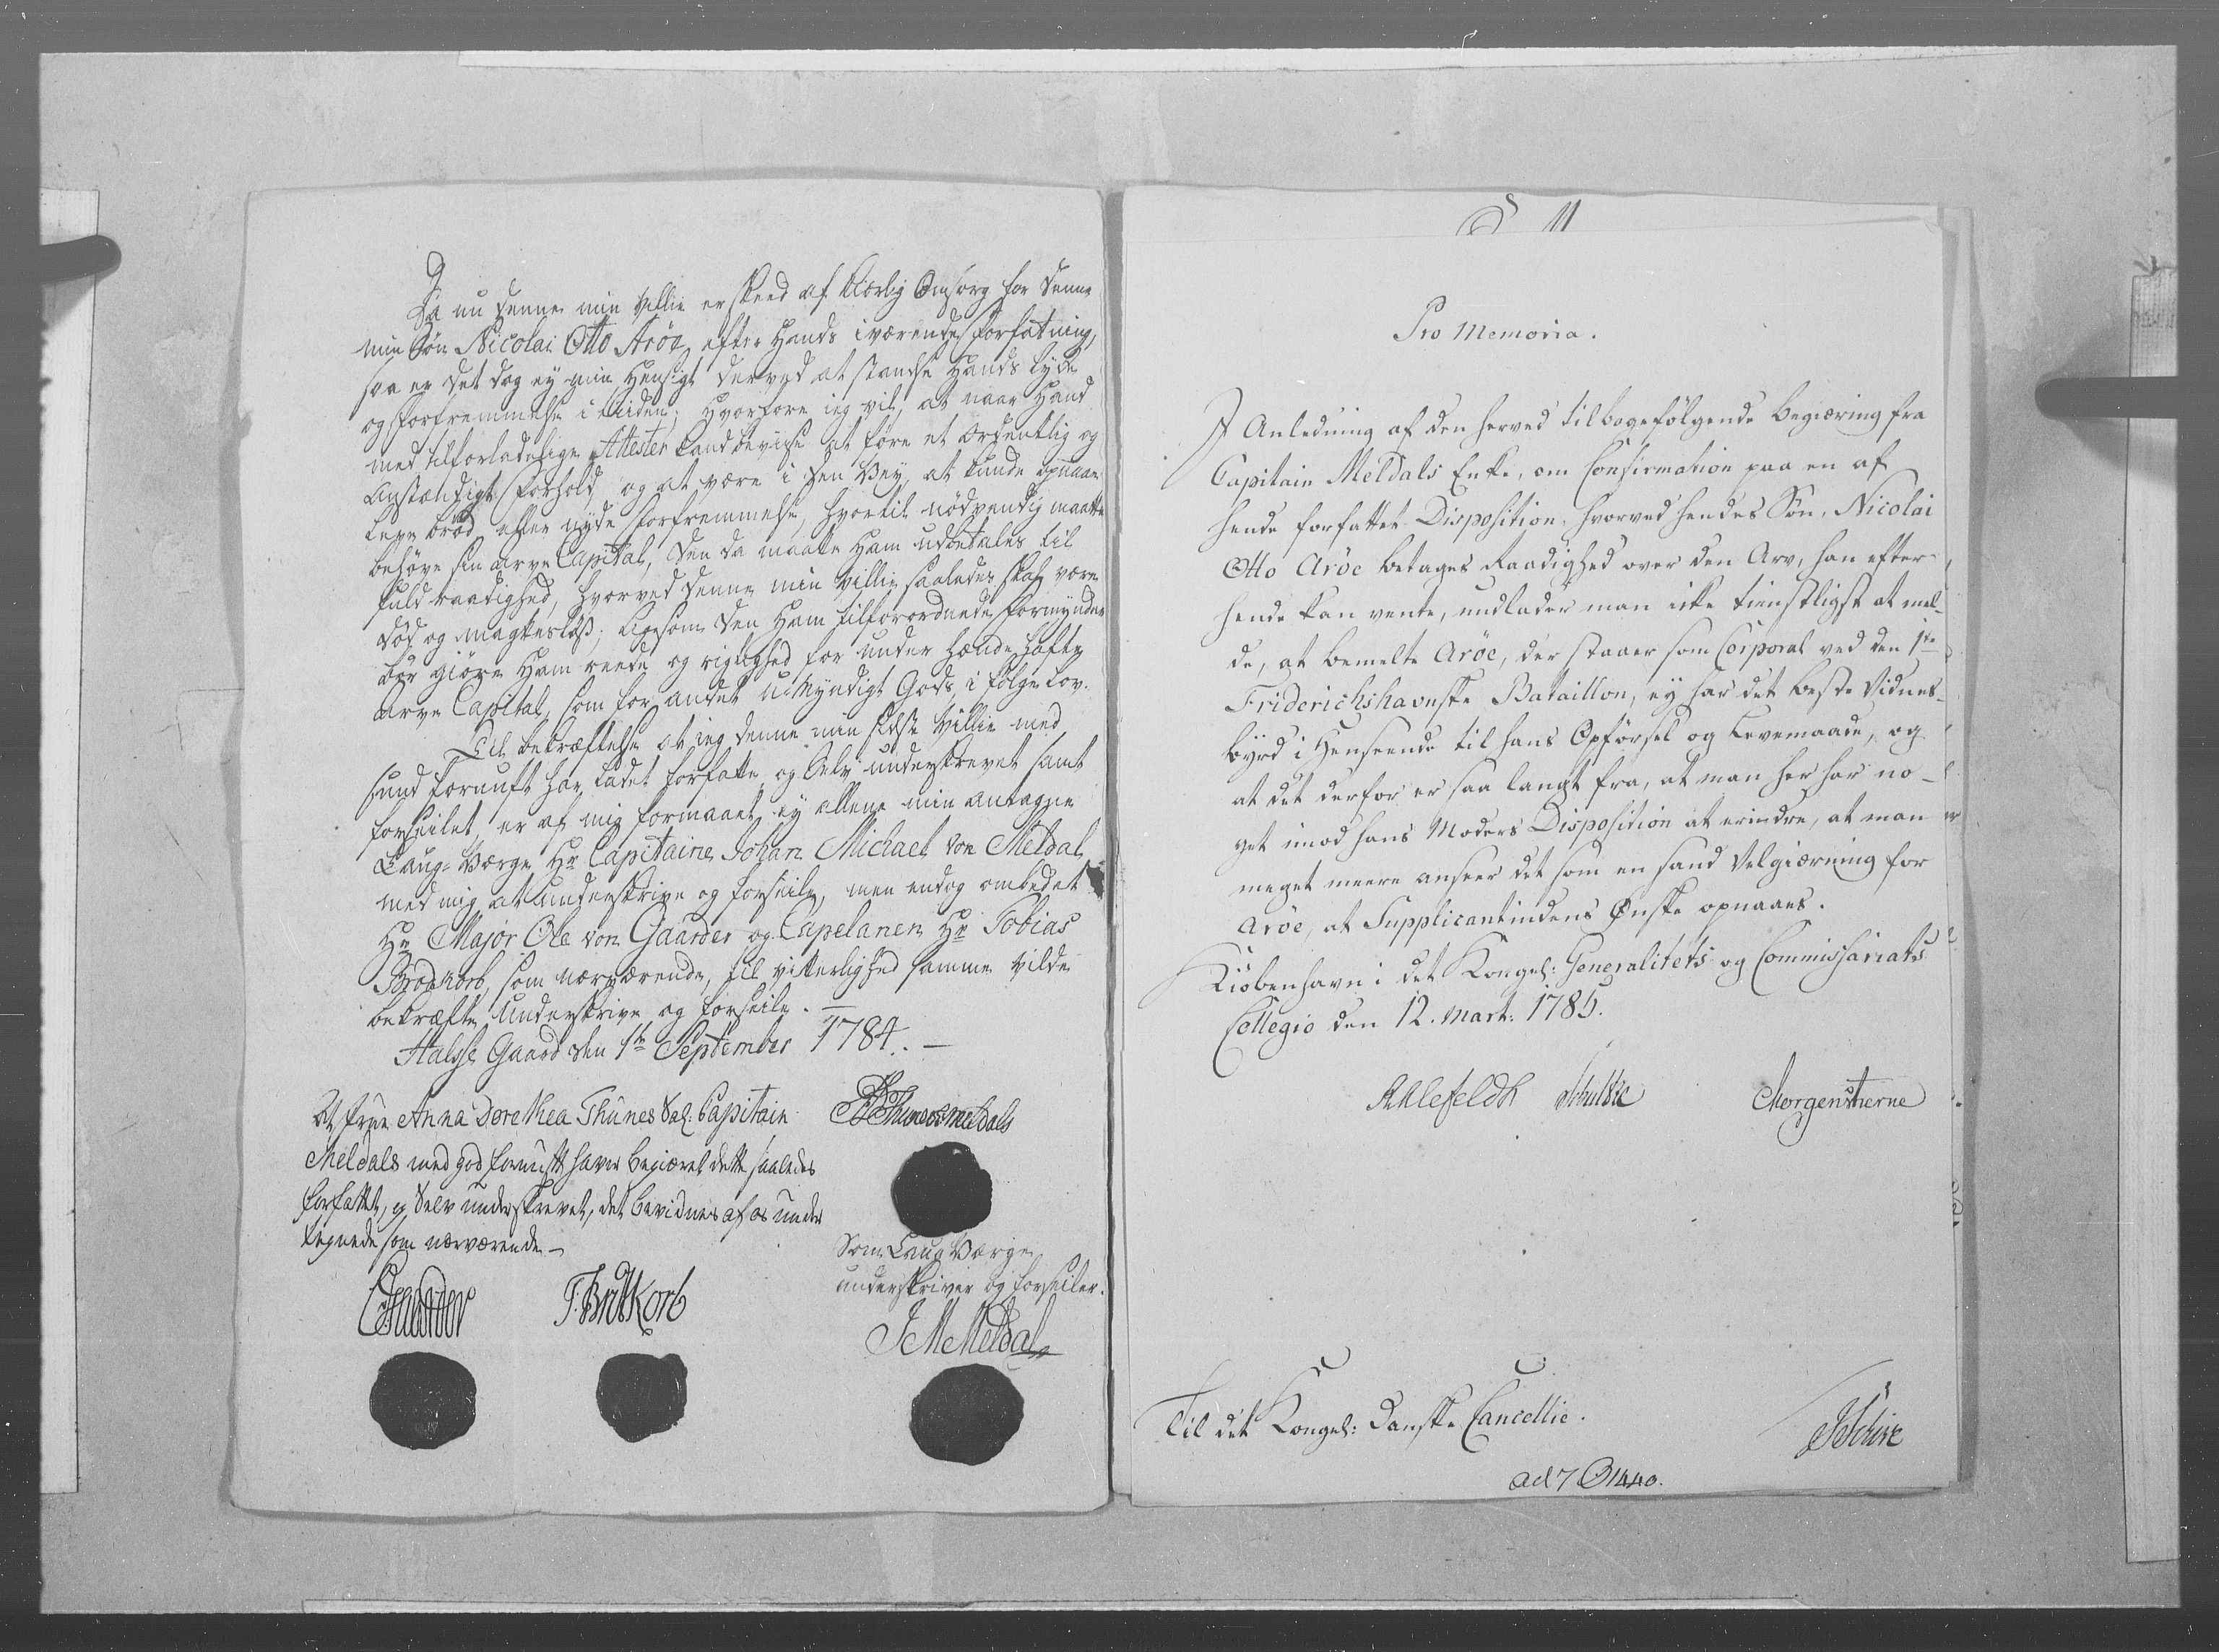 Da nu denne min Villie er skeed af kiærlig Omsorg for denne
min Søn Nicolai Otto Arøe, efter Hands iværende Forfatning,
saa er det dog ey min Hensigt derved at standse Hands Lyke
og Forfremmelse i tiiden; Hvorfore ieg vil, at naar Hand
med tilforladelige Attester kand bevise at føre et Ordentlig og
Anstændigt Forhold, og at være i den Vey, at kunde opnaae
Leve brød eller nyde Forfremmelse, hvortil nødvendig maatte
behøve sin arve Capital, den da maatte Ham udbetales til
fuld raadighed, hvorved denne min Villie saaledes skal være
død og magtesløs; ligesom den Ham tilforordnede Formynder
bør giøre Ham reede og rigtighed for under Hænde hafte
Arve Capital, som for andet Umyndigt Gods, i følge Lov.
Til bekræftelse at ieg denne min sidste Villie med
sund Fornuft har ladet forfatte, og Selv underskrevet samt
forseilet, er af mig formaaet, ey allene min antagne
Laug-Værge Hr Capitaine Johan Michael von Meldal
med mig at underskrive og forseile, men endog ombedet
Hr Major Ole von Gaarder og Capelanen Hr Tobias
Brodkorb, som nærværende, til vitterlighed samme vilde
bekræfte, Underskrive og forseile. —
Halsse Gaard den 1te September 1784. —
At Frue Anna Dorethea Thunes Sal: Capitain
Meldals med god fornuft haver begiæret dette saaledes
forfattet, og Selv underskrevet, det bevidnes af os under
tegnede som nærværende —
AD Thunes Meldals
Som Laug Værge
underskriver og forseiler.
OGaarder T. Brodtkorb
JMMeldal
11
Pro Memoria.
I Anledning af den herved tilbagefølgende Begiæring fra
Capitain Meldals Enke, om Confirmation paa en af
hende forfattet Disposition, hvorved hendes Søn, Nicolai
Otto Aröe betages Raadighed over den Arv, han efter
hende kan vente, undlader man icke tienstligst at mel-
de, at bemelte Aröe, der staaer som Corporal ved den 1te
Friderichshavnske Bataillon, ey har det beste Vidnes-
byrd i Henseende til hans Opförsel og Levemaade, og
at det derfor er saa langt fra, at man her har no-
get imod hans Moders Disposition at erindre, at man
meget meere anseer det som en sand Velgierning for
Aröe, at Supplicantindens Ønske opnaaes.
Kiöbenhavn i det Kongel: Generalitets og Commissariats
Collegio den 12. Mart: 1785.
Ahlefeldt Schultze Morgenstierne
Til det Kongel: Danske Cancellie.
ad 7 O 1440.